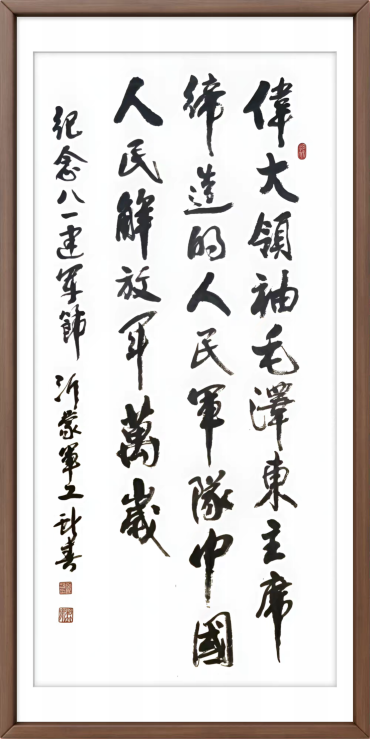 偉大領袖毛澤東主席
締造的人民軍隊中國
人民解放军萬歲
紀念八一建军節 沂蒙軍工